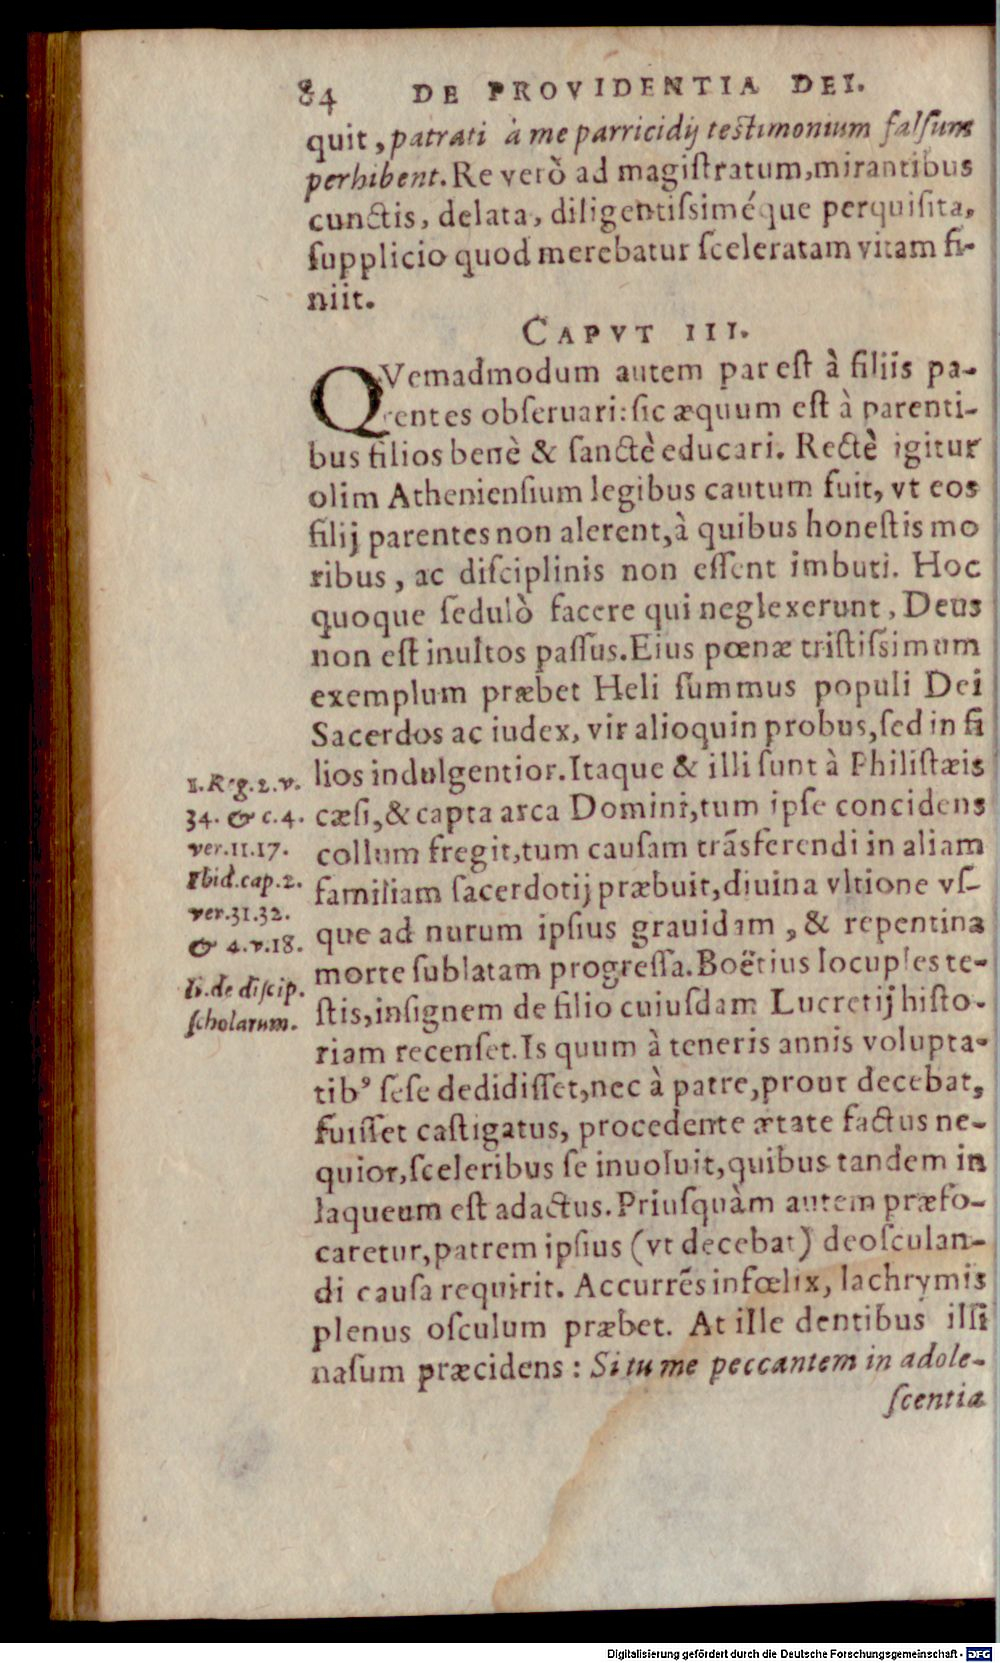 84 DE PROVIDENTIA DEI.
quit, patrati à me parricidij testimonium falsum
perhibent. Re verò ad magiſtratum, mirantibus
cunctis, delata, diligentiſsiméque perquiſita,
ſupplicio quod merebatur ſceleratam vitam fi-
niit.
CAPVT III.
QVemadmodum autem par eſt à filiis pa-
rentes obſeruari: ſic æquum eſt à parenti-
bus filios benè & ſanctè educari. Rectè igitur
olim Athenienſium legibus cautum fuit, vt eos
filij parentes non alerent, à quibus honeſtis mo
ribus, ac diſciplinis non eſſent imbuti. Hoc
quoque ſedulò facere qui neglexerunt, Deus
non eſt inultos paſſus. Eius pœnæ triſtiſsimum
exemplum præbet Heli ſummus populi Dei
Sacerdos ac iudex, vir alioquin probus, ſed in fi
lios indulgentior. Itaque & illi ſunt à Philiſtæis
cæſi, & capta arca Domini, tum ipſe concidens
collum fregit, tum cauſam trãsferendi in aliam
familiam ſacerdotij præbuit, diuina vltione vſ-
que ad nurum ipſius grauidam, & repentina
morte ſublatam progreſſa. Boëtius locuples te-
ſtis, inſignem de filio cuiuſdam Lucretij hiſto-
riam recenſet. Is quum à teneris annis volupta-
tibꝰ ſeſe dedidiſſet, nec à patre, prout decebat,
fuiſſet caſtigatus, procedente ætate factus ne-
quior, ſceleribus ſe inuoluit, quibus tandem in
laqueum eſt adactus. Priuſquàm autem præfo-
caretur, patrem ipſius (vt decebat) deoſculan-
di cauſa requirit. Accurrẽs infœlix, lachrymis
plenus oſculum præbet. At ille dentibus illi
naſum præcidens: Si tu me peccantem in adole-
ſcentia
1. Reg. 2. v.
34. & c. 4.
ver. 11. 17.
Ibid. cap. 2.
ver. 31. 32.
& 4. v. 18.
li. de diſcip.
ſcholarum.
Digitalisierung gefördert durch die Deutsche Forschungsgemeinschaft - DFG